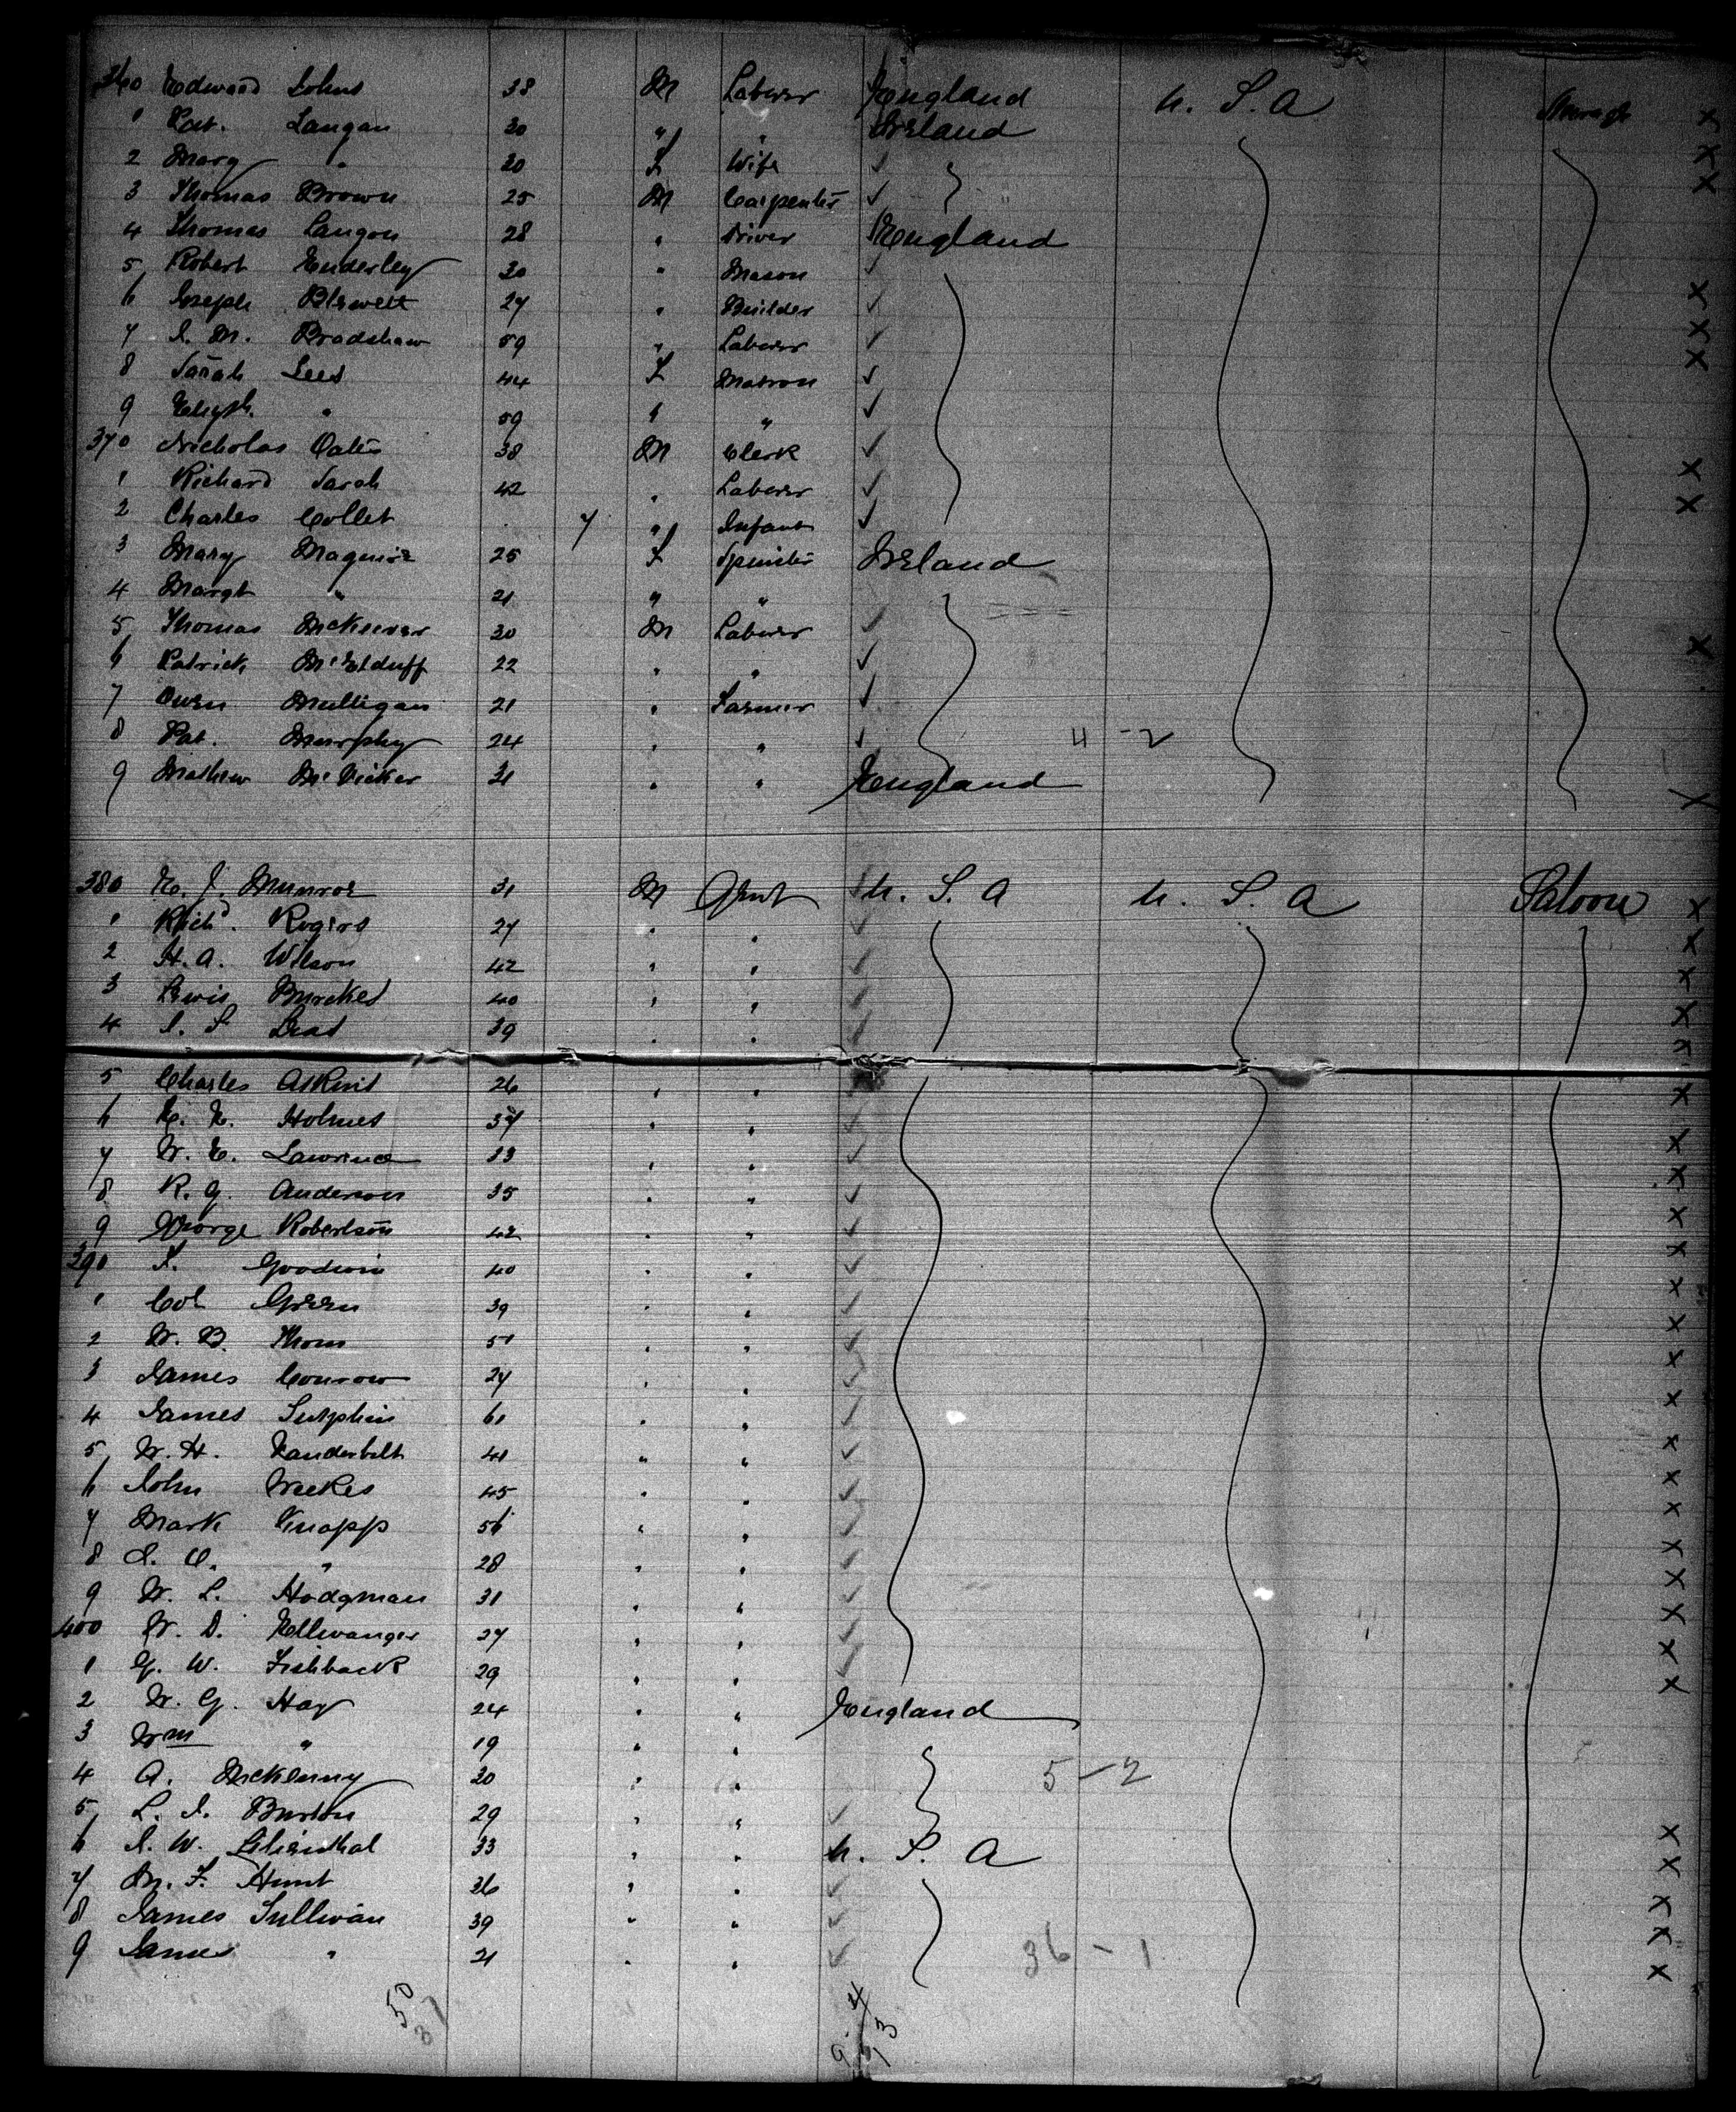 360 Edward Johns 38 M Laborer England U. S. A Steerage X
1 Pat. Langan 30 " " Ireland X
2 Mary " 30 F Wife ✓ X
3 Thomas Brown 25 M Carpenter ✓ X
4 Thomas Langon 28 " Driver England
5 Robert Enderley 30 " Mason ✓
6 Joseph Blewett 27 " Builder ✓ X
7 J. M. Bradshaw 59 " Laborer ✓ X
8 Sarah Lees 44 F Matron ✓ X
9 " 59 " " ✓
370 Nicholas Oates 38 M Clerk ✓ X
1 Richard Sarah 42 " Laborer ✓ X
2 Charles Collet 7 " Infant ✓
3 Mary Maguire 25 F Spinster Ireland
4 Margt " 21 " "
5 Thomas McKeever 30 M Laborer ✓ X
6 Patrick McElduff 22 " " ✓
7 Owen Mulligan 21 " Farmer ✓
8 Pat. Murphy 24 " " ✓ 4 - 2
9 Mathew McVicker 21 " " England X
380 E. J. Munroe 31 M Gent U. S. A U. S. A Saloon X
1 Richd. Rogers 27 " " ✓ X
2 H. A. Wilson 42 " " ✓ X
3 Lewis 40 " " ✓ X
4 J. S 39 " " ✓ X
5 Charles 26 " " X
6 E. E. Holmes 37 " " ✓ X
7 W. E. Lawrence 33 " " ✓ X
8 R. G. Anderson 35 " " ✓ X
9 George Robertson 42 " " ✓ X
390 J. Goodwin 40 " " ✓ X
1 Col Green 39 " " ✓ X
2 W. B. Thom 51 " " ✓ X
3 James Conrow 27 " " ✓ X
4 James Sutphin 61 " " ✓ X
5 W. H. Vanderbilt 41 " " ✓ X
6 John Weekes 45 " " ✓ X
7 Mark Knapp 56 " " ✓ X
8 " 28 " " ✓ X
9 W. L. Hodgman 31 " " ✓ X
400 W. D. Ellwanger 27 " " ✓ X
1 G. W. Fishback 29 " " ✓ X
2 W. G. Hay 24 " " England
3 Wm " 19 " "
4 A. McKenny 20 " " 5 - 2
5 L. J. Burton 29 " " ✓
6 J. W. Lilienthal 33 " " U. S. A X
7 M. F. Hunt 26 " " ✓ X
8 James Sullivan 39 " " ✓ X
9 James " 21 " " ✓ 36 - 1 X
50
37